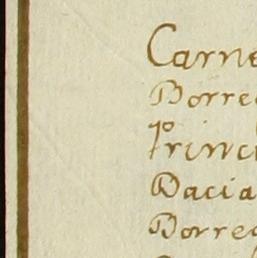 Carne
Borre
Princi
Dacia
Borre